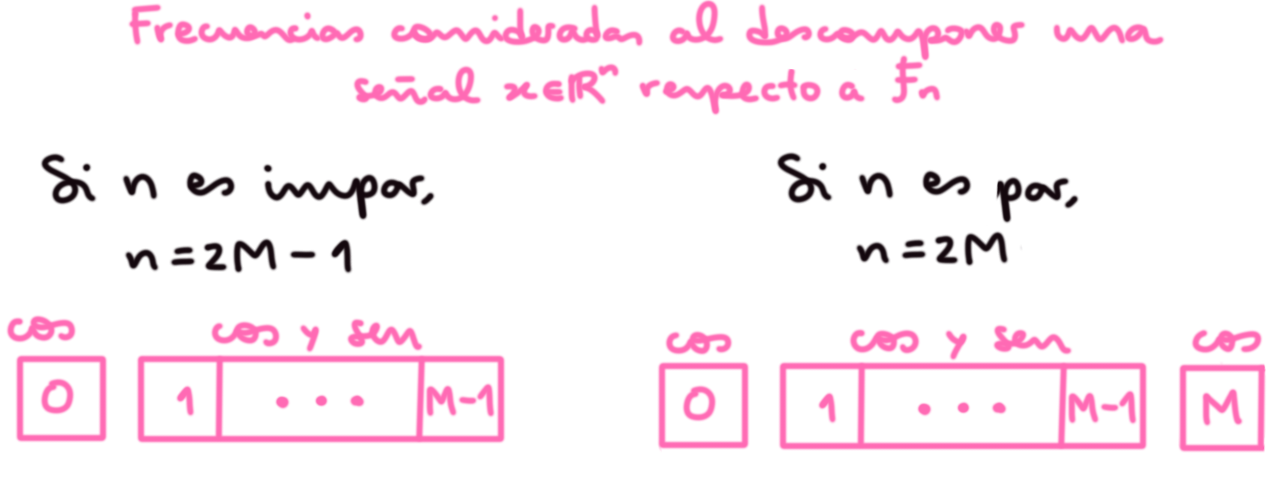 Frecuencias consideradas al descomponer una
señal x∈ℝⁿ respecto a Fₙ
Si n es impar,
n=2M-1
cos
cos y sen
0
1
...
M-1
Si n es par,
n=2M
cos
cos y sen
cos
0
1
...
M-1
M